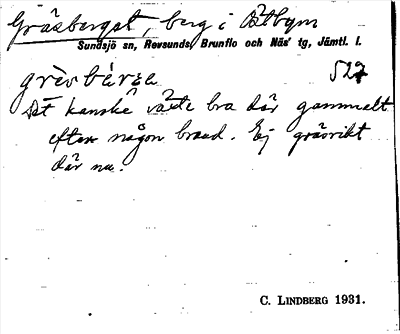 Gräsberget, berg i Östbyn
Sundsjö sn, Revsunds, Brunflo och Näs' tg, Jämtl. l.
grèsbärʒa 527
Det kanske växte bra där gammalt
efter någon brand. Ej gräsrikt
där nu.
C. LINDBERG 1931.